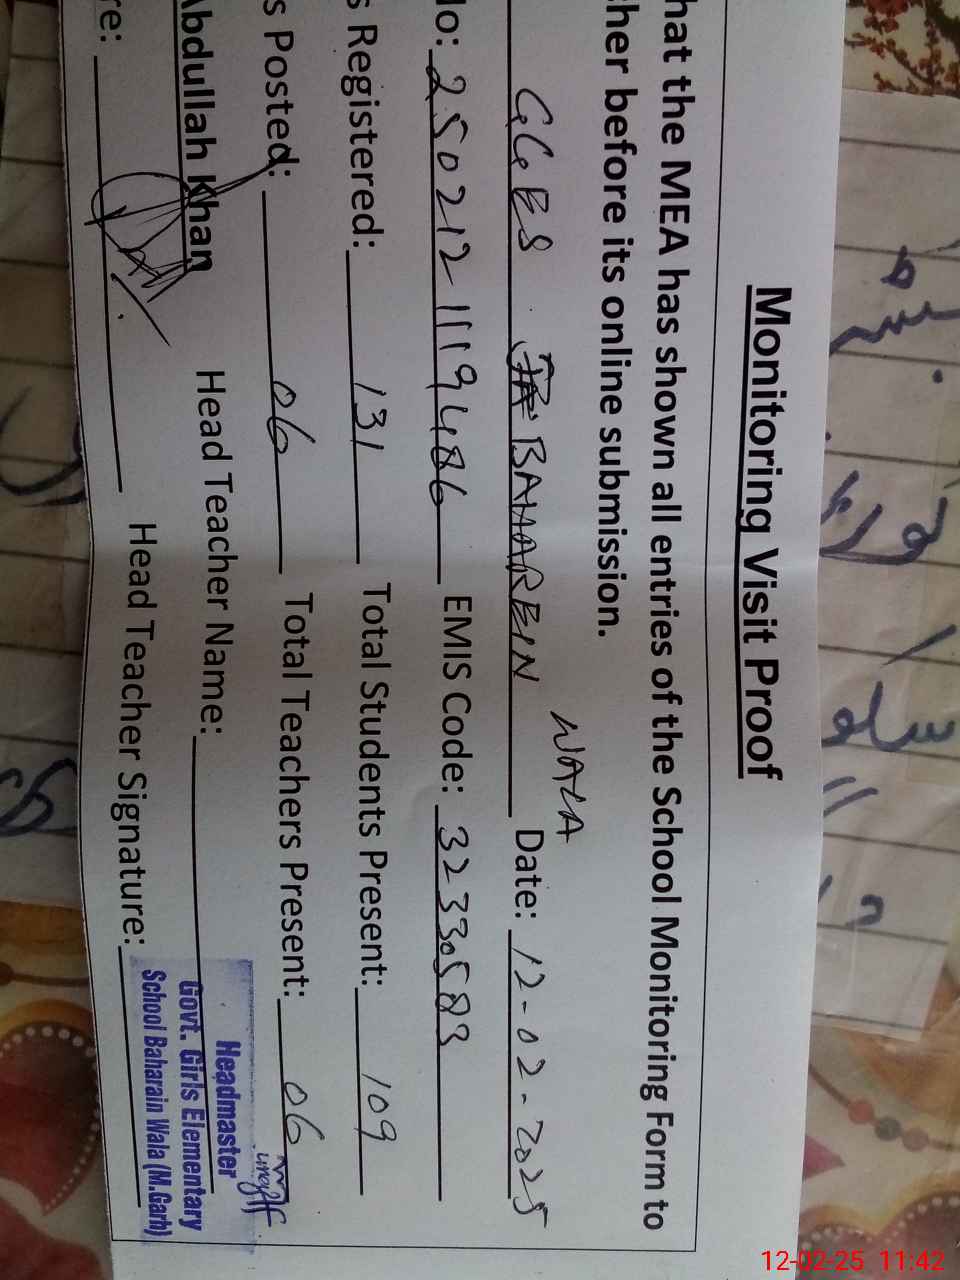 Monitoring Visit Proof
hat the MEA has shown all entries of the School Monitoring Form to
her before its online submission.
GGES BAHAREIN WALA Date: 12-02-2025
No: 2502121119486 EMIS Code: 32330583
s Registered: 131 Total Students Present: 109
s Posted: 06 Total Teachers Present: 06
Abdullah Khan Head Teacher Name:
re: Head Teacher Signature:
Headmaster
Govt. Girls Elementary
School Baharain Wala (M.Garh)
12-02-25 11:42